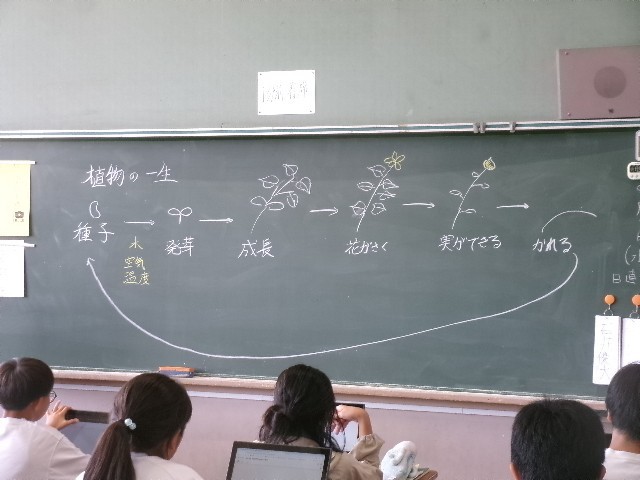 植物の一生
種子
水
空気
温度
発芽
成長
花がさく
実ができる
かれる